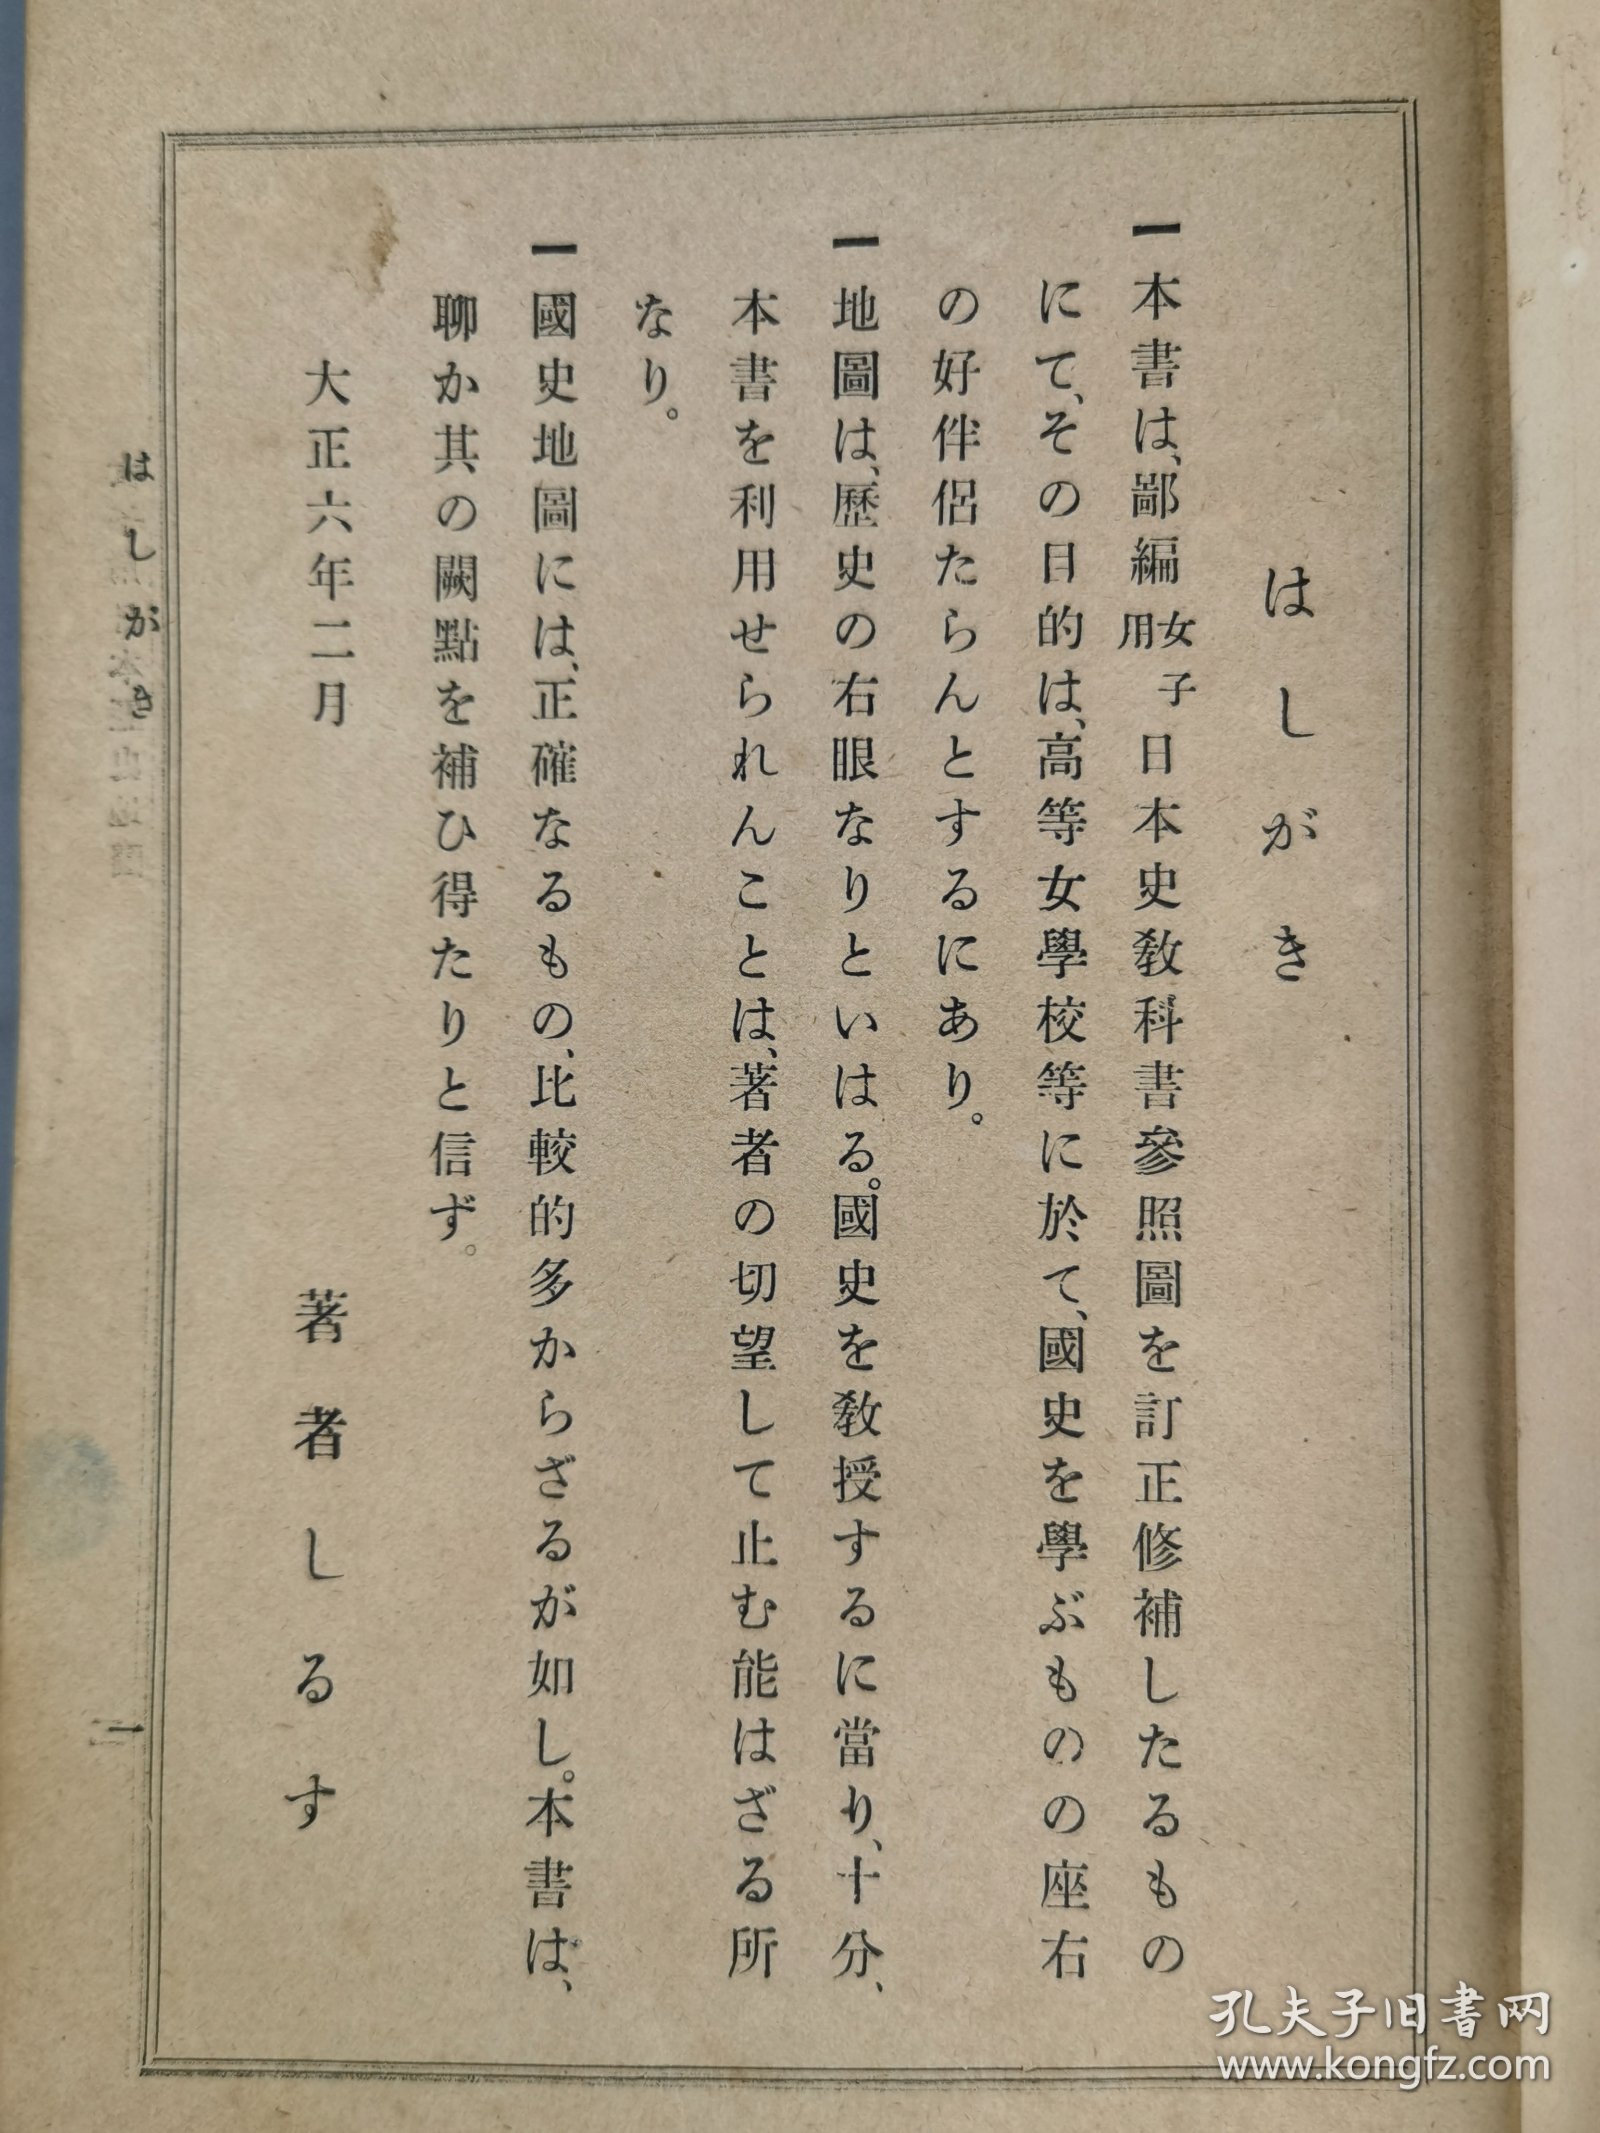 はしがき
一本書は、鄙編女子用日本史教科書參照圖を訂正修補したるもの
にて、その目的は、高等女學校等に於て、國史を學ぶものの座右
の好伴侶たらんとするにあり。
一地圖は、歷史の右眼なりといはる。國史を教授するに當り、十分、
本書を利用せられんことは、著者の切望して止む能はざる所
なり。
一國史地圖には、正確なるもの、比較的多からざるが如し。本書は、
聊か其の闕點を補ひ得たりと信ず。
大正六年二月
著者しるす
はしがき
一
孔夫子旧书网
www.kongfz.com